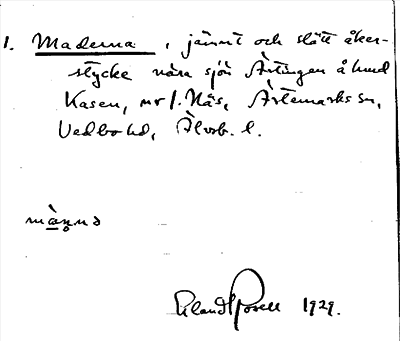 1. Maderna, jämnt och slätt åker-
stycke nära sjön Ärtingen å hmd
Kasen, nr 1. Näs, Ärtemarks sn,
Vedbo hd, Älvsb. l.
1929.